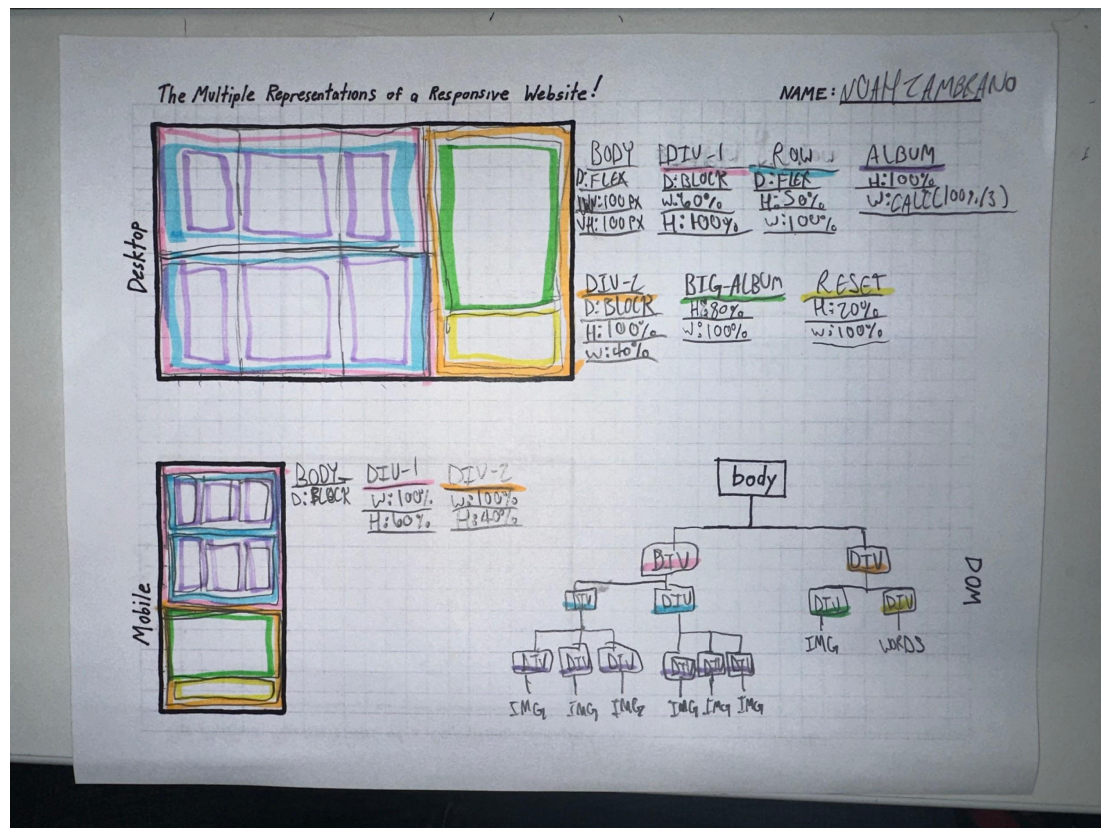 The Multiple Representations of a Responsive Website!
NAME: NOAH ZAMBRANO
Desktop
BODY
D:FLEX
VW:100PX
VH:100PX
DIV-1
D:BLOCK
W:60%
H:100%
ROW
D:FLEX
H:50%
W:100%
ALBUM
H:100%
W:CALC(100%/3)
DIV-2
D:BLOCK
H:100%
W:40%
BIG-ALBUM
H:80%
W:100%
RESET
H:20%
W:100%
Mobile
BODY
D:BLOCK
DIV-1
W:100%
H:60%
DIV-2
W:100%
H:40%
DOM
body
DIV DIV
DIV DIV DIV DIV
IMG WORDS
DIV DIV DIV DIV DIV DIV
IMG IMG IMG IMG IMG IMG